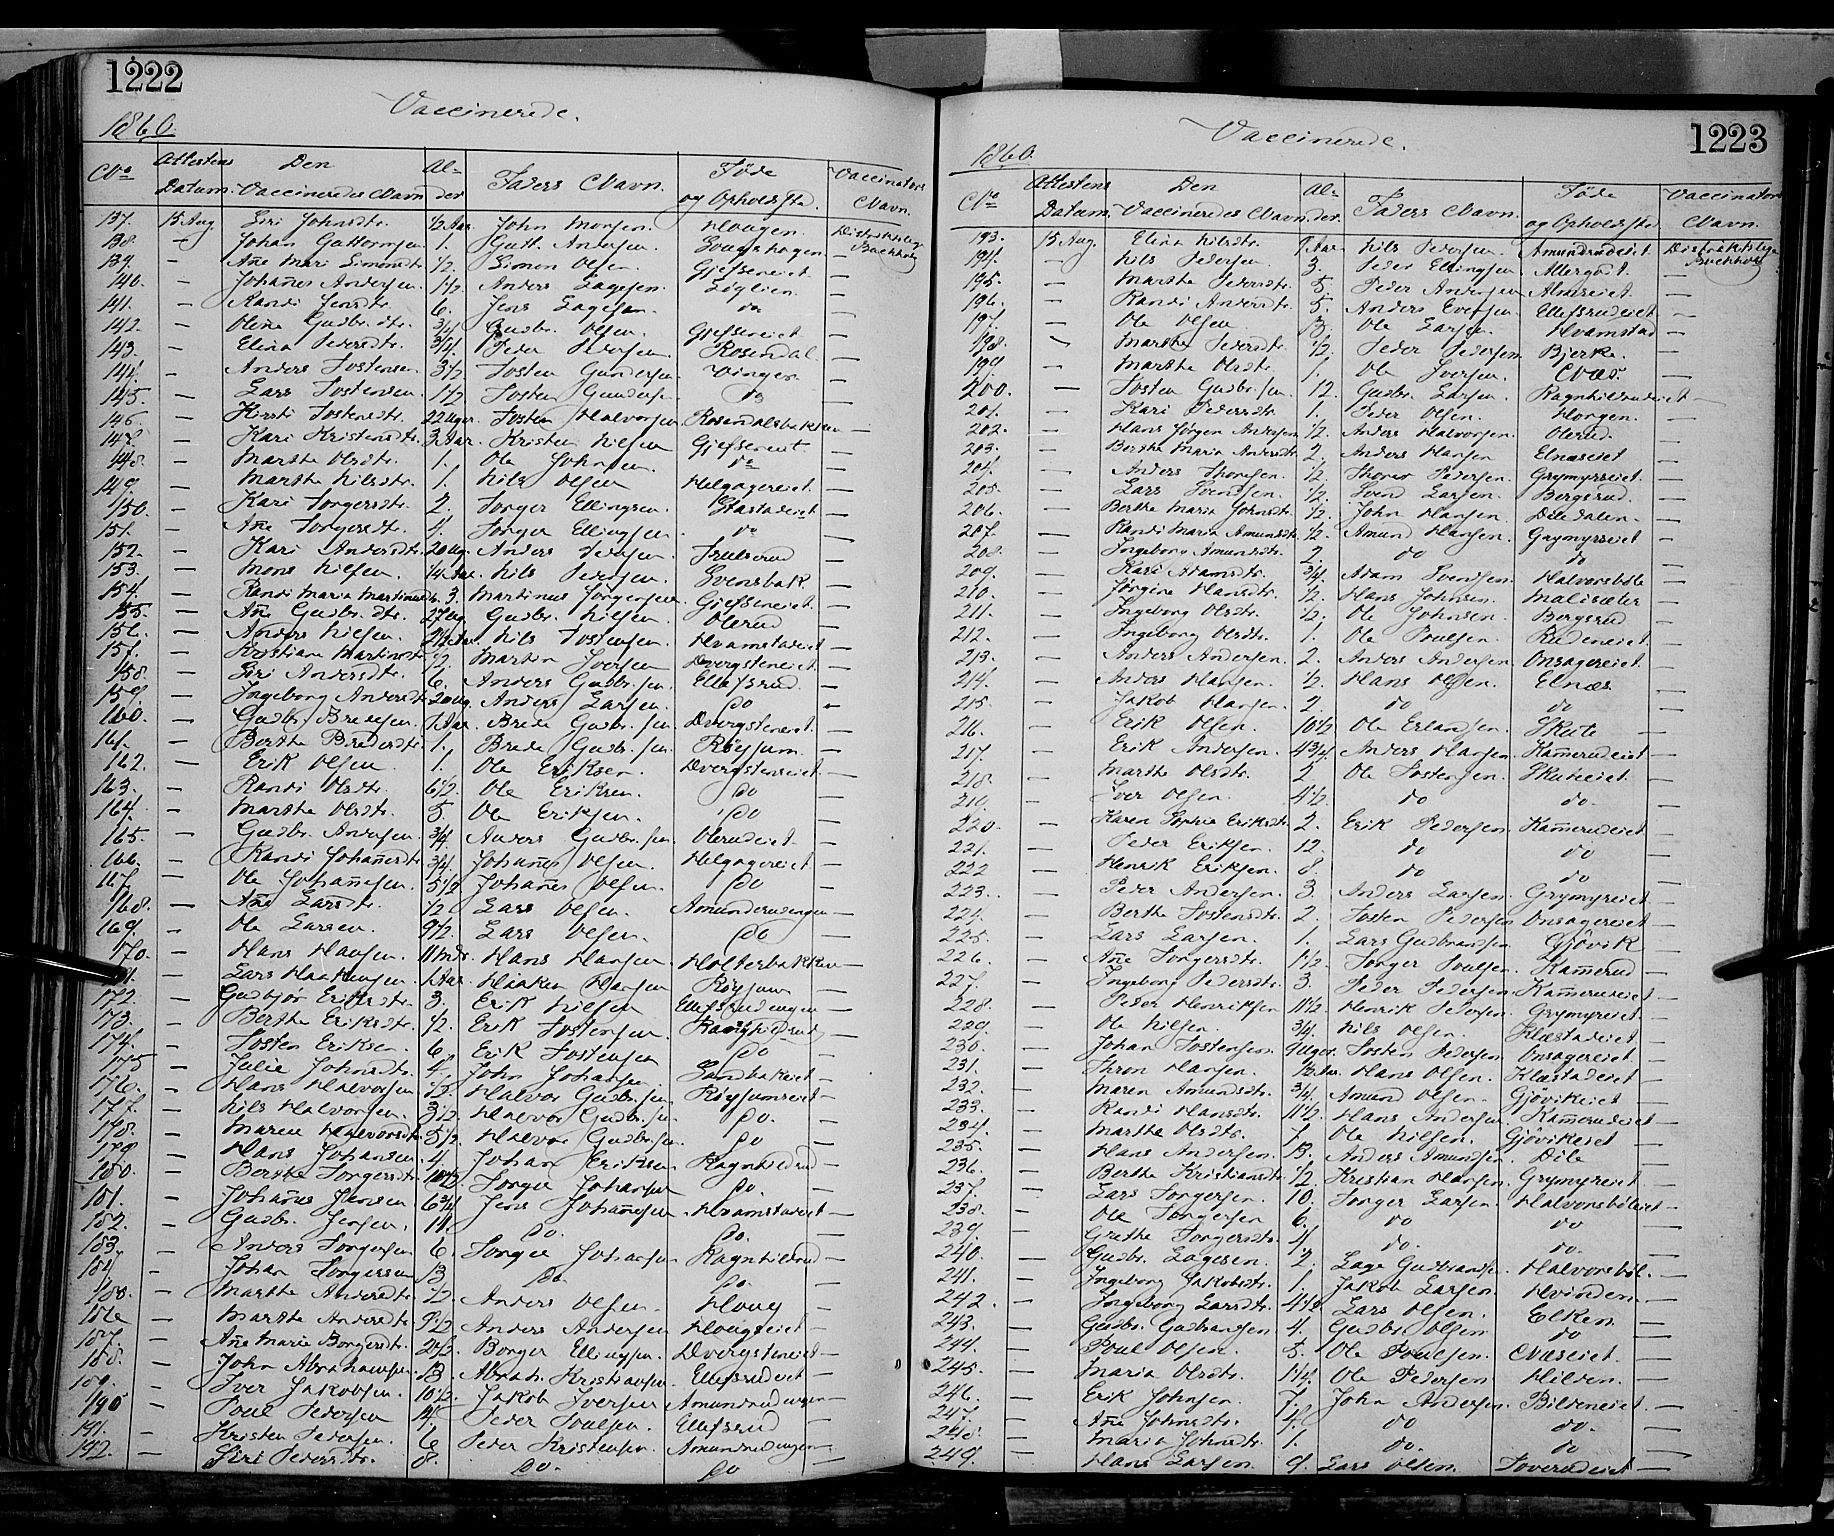 1222
Vaccinerede.
1860.
No Attestens Datum. Den Vaccineredes Navn Alder Faders Navn. Føde og Opholdssted. Vaccinators Navn.
137. 15 Aug. Siri Johnsdtr. 1/2 Aar John Haugen. Distriktslæge Buchholz
138. — Johan Guttormsen 1. Gutt. Andersen —
139. — Añe Mari Simonsdtr. 1/2. Simon Olsen. Gjefseneiet. —
140. — Johañes Andersen. 1 1/2 Anders Lagesen. Liglien. —
141. — Randi Jensdtr. 6. Jens Lagesen. do —
142. — Oline Gudbr.dtr. 3/4 Gudbr. Olsen. Gjefseneiet. —
143. — Elina Pedersdtr. 3/4. Peder Pedersen. Rosendal. —
144. — Anders Tostensen 3 1/2 Tosten Gundersen. Vinger. —
145. — Lars Tostensen. 1 1/2 Tosten Gundersen. do —
146. — Kirsti Tostensdtr. 22 Uger. Tosten Halvorsen. Rosendalsbakken —
147. — Kari Kristensdtr. 3 Aar. Kristen Nilsen Gjefseneiet. —
148. — Marthe Olsdtr. 1. Ole Johnsen. do —
149. — Marthe Nilsdtr. 1. Nils Olsen Helgagereiet. —
150. — Kari Torgersdtr. 2. Torger Ellingsen. Stastadeiet —
151. — Añe Torgersdtr. 4. Torger Ellingsen. do —
152. — Kari Andersdtr. 20 Ug. Anders Pedersen. Trulserud —
153. — Mons Nilsen. 1/4 Aar. Nils Pedersen. Svensbak. —
154. — Randi Maria Martinusdtr. 3. Martinus Jørgensen. Gjefseneiet. —
155. — Añe Gudbr.dtr. 27 Ug. Gudbr. Nilsen. Olerud —
156. — Anders Nilsen. 2 1/2 Aar. Nils Tostensen. Hvamstadeiet —
157. — Kristiane Martinsdtr. 1/2. Martin Iversen Dvergsteneiet. —
158. — Siri Andersdtr. 6. Anders Gudbr.sen. Ellefsrud. —
159. — Ingeborg Andersdtr. 20 Ug. Anders Larsen. do —
160. — Gudbr. Bredesen. 1 Aar. Brede Gudbr.sen. Dvergsteneiet. —
161. — Berthe Bredesdtr. 1. Brede Gudbr.sen. Røysum. —
162. — Erik Olsen 1. Ole Eriksen. Dvergsteneiet. —
163. — Randi Olsdtr. 6 1/2. Ole Eriksen. do —
164. — Marthe Olsdtr. 5. Ole Eriksen. do —
165. — Gudbr. Andersen. 3/4. Anders Gudbr.sen. Olerudeiet. —
166. — Randi Johañesdtr. 3/4. Johañes Olsen. Helgagereiet —
167. — Ole Johañesen. 5 1/2 Johañes Olsen. do —
168. — Añe Larsdtr. 1/2 Lars Olsen. Amundrudengen —
169. — Ole Larsen. 9 1/2. Lars Olsen. do —
170. — Hans Hansen. 11 Mdr. Hans Hansen. Holterbakken —
171. — Lars Haakensen. 1 Aar. Haaken Hansen Røysum —
172. — Gudbjør Eriksdtr. 3. Erik Nilsen Ellefsrudengen —
173. — Berthe Eriksdtr. 1/2. Erik Tostensen Ragnhildrud —
174. — Tosten Eriksen. 6. Erik Tostensen do —
175 — Julie Johnsdtr. 4. John Johansen Sandbakeiet —
176. — Hans Halvorsen 1/2. Halvor Gudbr.sen. Røysumseiet —
177. — Nils Halvorsen. 3 1/2. Halvor Gudbr.sen. do. —
178. — Maren Halvorsdtr. 5 1/2. Halvor Gudbr.sen. do —
179. — Hans Johansen. 4. Johan Eriksen. Ragnhildrud —
180. — Berthe Torgersdtr. 10 1/2. Torger Johansen do. —
181. — Johañes Jensen 6 3/4 Jens Johañesen. Hvamstadeiet —
182. — Gudbr. Jensen. 11. do. do. —
183. — Anders Torgersen 6. Torger Johansen Ragnhildrud —
184 — Johan Torgersen 13 do. do. —
185. — Marthe Andersdtr. 1/2. Anders Olsen. Houg —
186 — Marthe Andersdtr. 9 1/2 Anders Andersen Hougseiet —
187. — Añe Marie Borgersdtr. 2 1/2. Borger Ellingsen. Dvergsteneiet —
188. — John Abrahamsen. 13 Abrah. Kristiansen. Ellefsrudeiet —
189. — Iver Jakobsen. 10 1/2. Jakob Iversen Amundrudengen —
190 — Poul Pedersen 14. Peder Poulsen. Ellefsrud —
191. — Kristen Pedersen. 6 Peder Kristensen. Amundrudengen —
192. — Siri Pedersdtr. 8. do. do —
1223
Vaccinerede.
1860.
No Attestens Datum. Den Vaccineredes Navn Alder. Faders Navn. Føde og Opholdssted Vaccinators Navn.
193. 15 Aug. Elina Nilsdtr. 1 Aar Nils Pedersen. Amundrudeiet. Distriktslæge Buchholz
194. — Nils Pedersen. 3. Peder Ellingsen. Allergodt. —
195. — Marthe Pedersdtr. 5. Peder Andersen Almseiet. —
196. — Randi Andersdtr. 5. Anders Evensen Ellefsrudeiet —
197. — Ole Olsen. 3. Ole Larsen. Hvamstad —
198. — Marthe Pedersdtr. 1/2 Peder Pedersen Bjerke. —
199 — Marthe Olsdtr. 1. Ole Iversen. Næs. —
200. — Tosten Gudbr.sen. 12. Gudbr. Larsen. Ragnhildrudeiet —
201. — Kari Pedersdtr. 1. Peder Olsen. Horgen. —
202. — Hans Jørgen Andersen 1/2. Anders Halvorsen. Olerud. —
203. — Berthe Maria Andersdtr. 2. Anders Hansen Elnæseiet —
204. — Anders Thoresen. 1/2 Thorer Pedersen. Grymyrseiet. —
205. — Lars Svendsen. 1/2. Svend Larsen. Bergsrud. —
206. — Berthe Maria Johnsdtr. 1/2. John Hansen. Diledalen. —
207. — Randi Maria Amundsdtr. 1/2. Amund Hansen. Grymyrseiet. —
208. — Ingeborg Amundsdtr. 2. do do —
209. — Kari Adamsdtr. 3/4. Adam Svendsen. Halvorsbøle —
210. — Jørgine Hansdtr. 1/2. Hans Johnsen. Malisæter —
211. — Ingeborg Olsdtr. 1/2. Ole Johnsen. Bergsrud —
212. — Ingeborg Olsdtr. 1. Ole Poulsen. Rudeneiet. —
213. — Anders Andersen. 2. Anders Andersen. Onsagereiet. —
214. — Anders Hansen. 1/2. Hans Olsen. Elnæs. —
215 — Jakob Hansen. 2. do do —
216. — Erik Olsen. 10 1/2 Ole Erlandsen. Skute —
217. — Erik Andersen. 4 3/4. Anders Hansen Kamerudeiet —
218. — Marthe Olsdtr. 2. Ole Tostensen. Skuteeiet. —
219. — Iver Olsen. 4 1/2. do do. —
220. — Karen Sophie Eriksdtr. 2. Erik Pedersen Kamerudeiet —
221. — Peder Eriksen. 12. do do —
222 — Henrik Eriksen. 8. do do —
223. — Peder Andersen. 3. Anders Larsen. Grymyreiet. —
224. — Berthe Tostensdtr. 2. Tosten Pedersen Onsagereiet. —
225. — Lars Larsen. 1. Lars Gudbrandsen Gjövik —
226. — Añe Torgersdtr. 1 1/2. Torger Poulsen. Kamerud —
227. — Ingeborg Pedersdtr. 3. Peder Pedersen. Kamerudeiet —
228. — Peder Henriksen 11 1/2. Henrik Pedersen. Grymyreiet. —
229. — Ole Nilsen. 3/4. Nils Olsen. Klæstadeiet —
230. — Johan Tostensen. 9 Uger. Tosten Pedersen Onsagereiet. —
231. — Thron Hansen. 1/2 Aar. Hans Olsen. Klæstadeiet —
232. — Maren Amundsdtr. 3/4. Amund Olsen. Gjövikeiet —
233. — Randi Hansdtr. 11 1/2. Hans Andersen. Kamerudeiet —
234. — Marthe Olsdtr. 7. Ole Nilsen. Gjövikeiet —
235. — Hans Andersen. 13. Anders Amundsen. Dile —
236. — Berthe Kristiansdtr. 1/2 Kristian Hansen. Grymyreiet —
237. — Lars Torgersen. 10. Torger Larsen. Halvorsböleiet —
238. — Ole Torgersen 6. do do —
239. — Grethe Torgersdtr. 4. do. do. —
240. — Gudbr. Lagesen. 2. Lage Gudbrandsen. Halvorsböl. —
241. — Ingeborg Jakobsdtr. 1. Jakob Larsen. Hvinden. —
242. — Ingeborg Larsdtr. 4 1/2. Lars Olsen. Elken. —
243. — Gudbr. Gudbrandsen 4. Gudbr. Olsen do —
244. — Poul Olsen. 5. Ole Poulsen. Næseiet. —
245. — Maria Olsdtr. 1 1/4. Ole Pedersen. Hilden. —
246. — Erik Johnsen. 7. John Andersen. Bildeneiet. —
247. — Añe Johnsdtr. 4. do do. —
248. — Maria Johnsdtr. 1. do. do —
249. — Hans Larsen. 9. Lars Olsen. Toverudeiet —